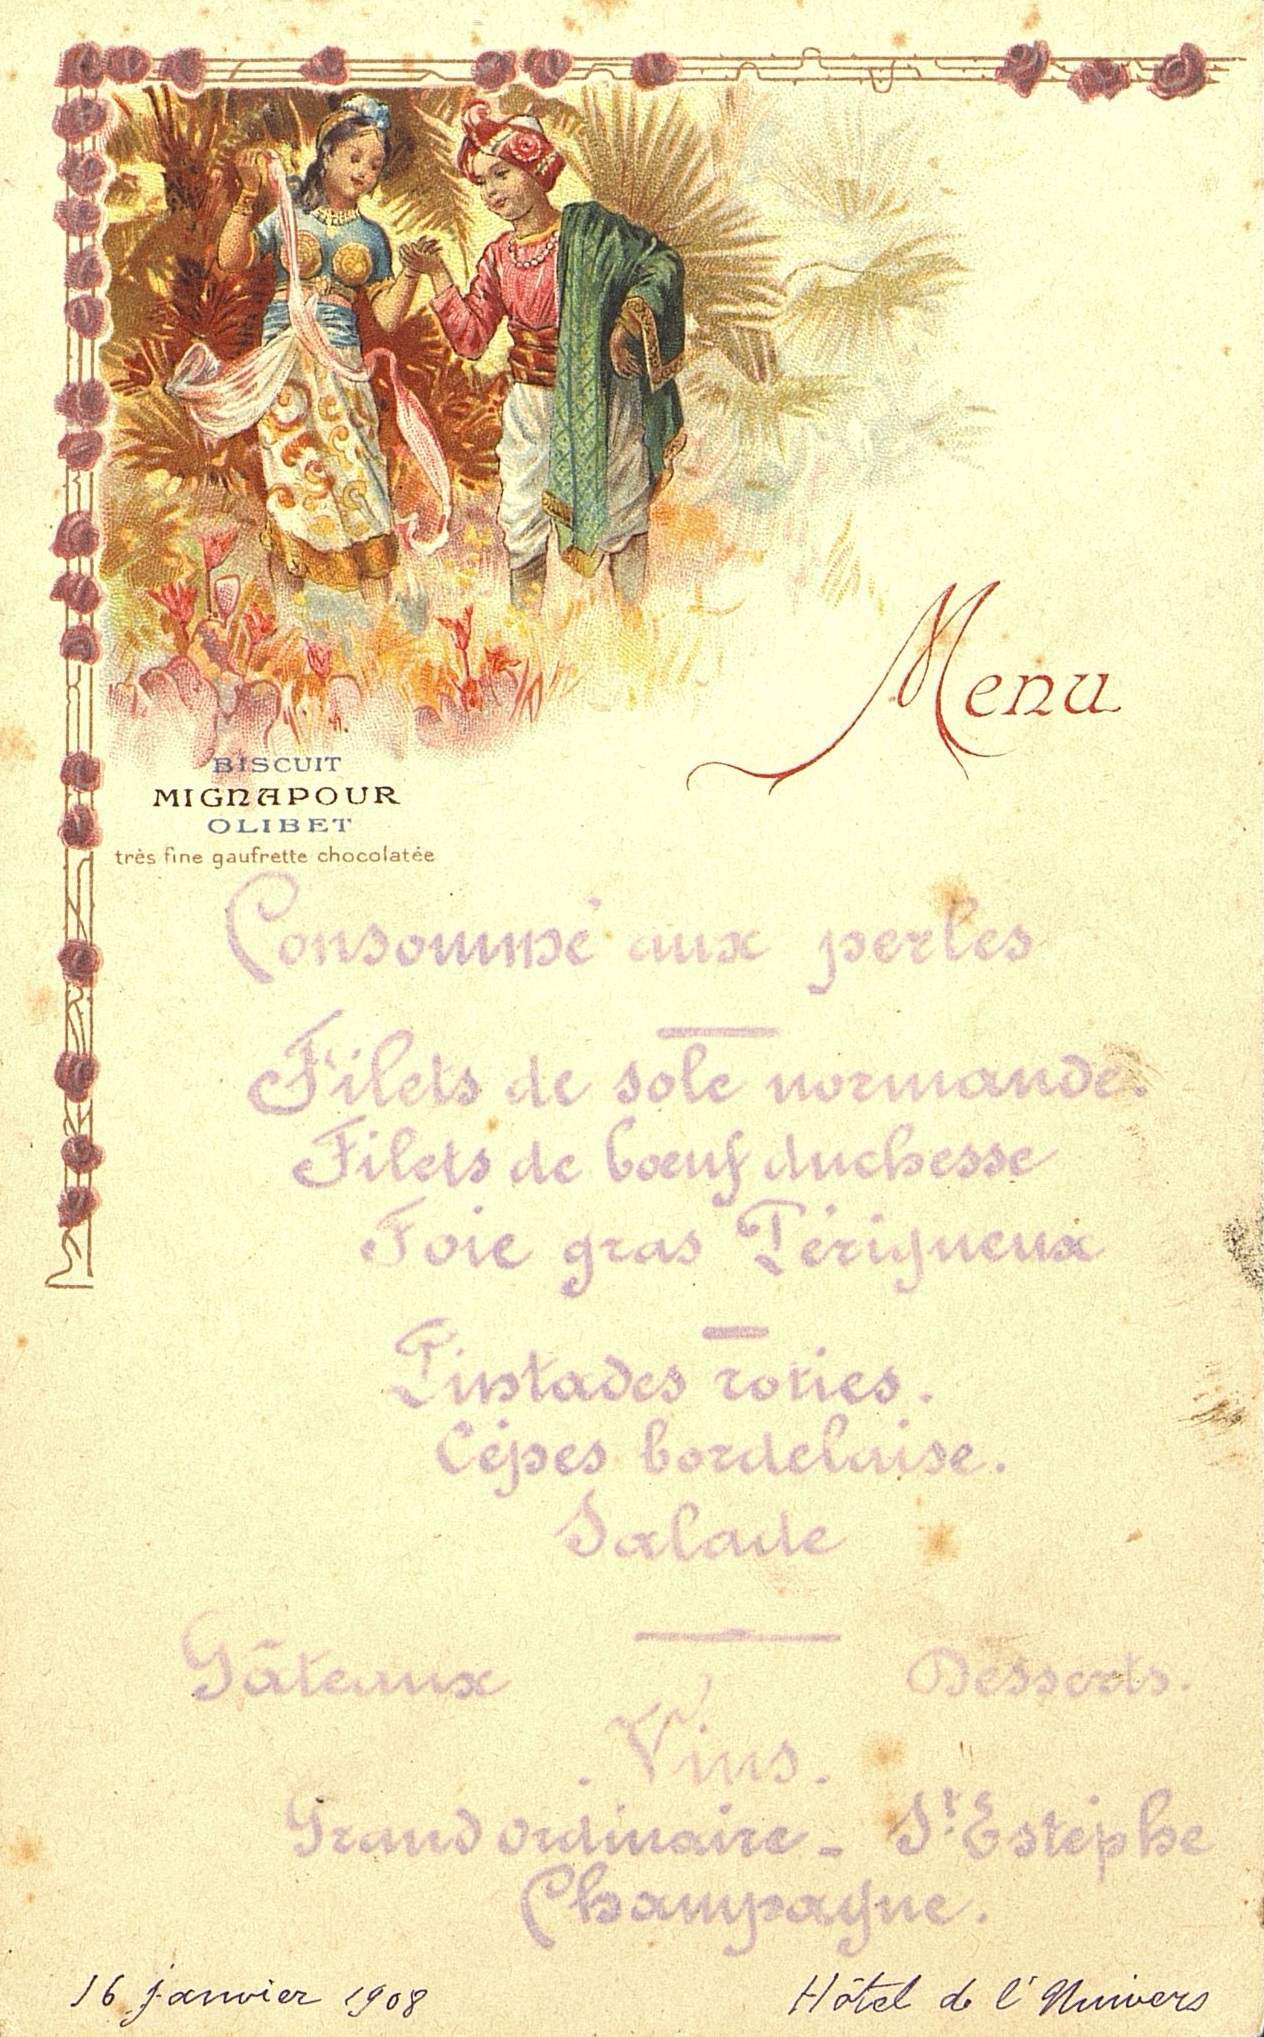 Menu
BISCUIT
MIGNAPOUR
OLIBET
très fine gaufrette chocolatée
Consommé aux perles
Filets de sole normande.
Filets de bœuf duchesse
Foie gras Périgueux
Pintades roties.
Cépes bordelaise.
Salade
Gâteaux Desserts.
. Vins.
Grand ordinaire - St Estèphe
Champagne.
16 janvier 1908 Hôtel de l'Univers